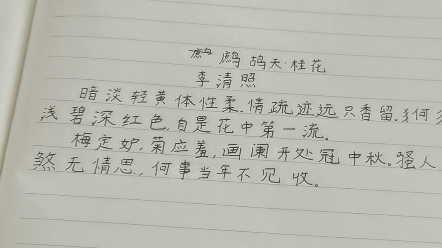 鹧鸪天·桂花
李清照
暗淡轻黄体性柔.情疏迹远只香留.何须
浅碧深红色,自是花中第一流。
梅定妒,菊应羞,画阑开处冠中秋。骚人
煞无情思,何事当年不见收。